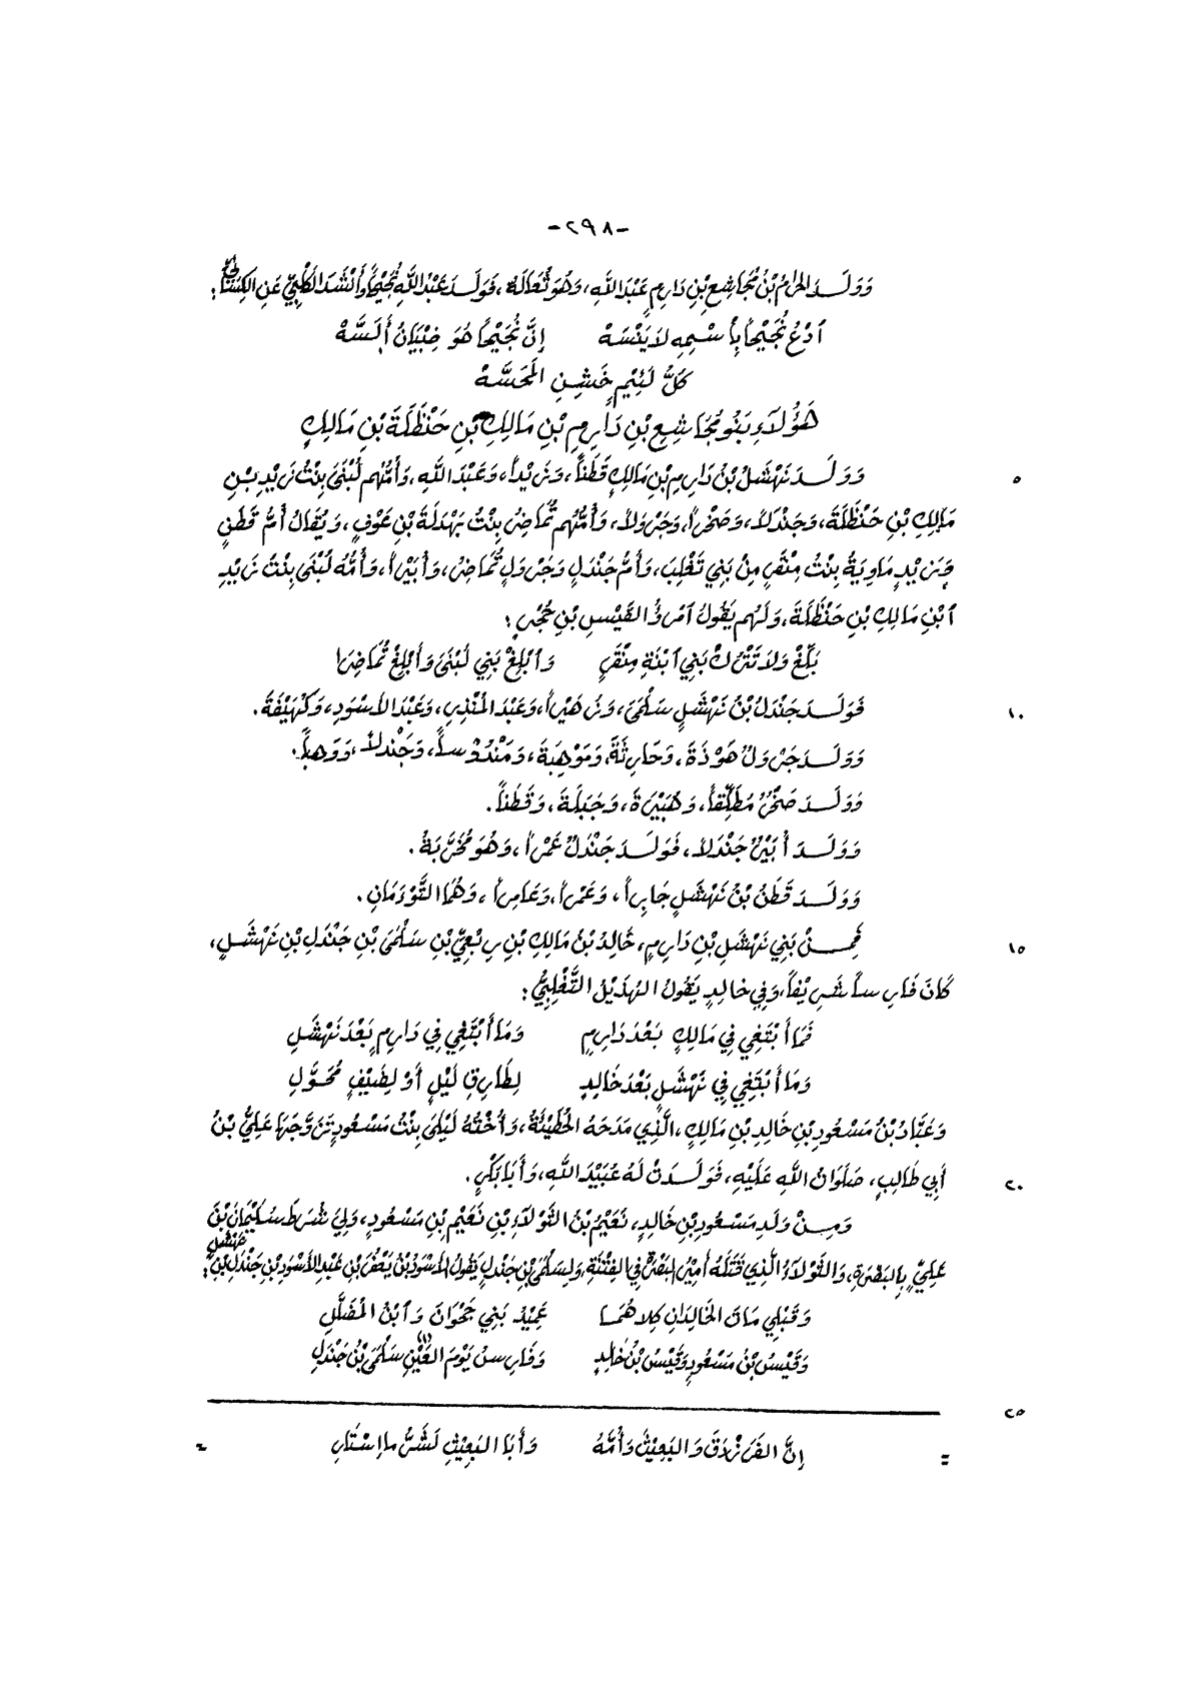 -٢٩٨-
وَوَلَـدَ الحَرَامُ بْنُ مُجَاشِعِ بْنِ دَارِمٍ عَبْدَ اللَّهِ، وَهُوَ ثُعَالَةُ، فَوَلَـدَ عَبْدُ اللَّهِ نُجَيْحَاً وَأَنْشَدَ الكَلْبِيُّ عَنِ الكِسَائِيِّ:
آدْعُ نُجَيْحَاً بِاسْـمِهِ لاَ يَنْسَهْ إِنَّ نُجَيْحَاً هُوَ ضِبْيَانُ أَلسَّهْ
كُلُّ لَئِيْمٍ خَشِنِ المَحَسَّهْ
هَؤُلاَءِ بَنُو مُجَاشِعِ بْنِ دَارِمِ بْنِ مَالِكِ بْنِ حَنْظَلَةَ بْنِ مَالِكٍ
وَوَلَـدَ نَهْشَلُ بْنُ دَارِمِ بْنِ مَالِكٍ قَطَنَاً، وَزَيْدَاً، وَعَبْدَ اللَّهِ، وَأُمُّهُم لُبْنَى بِنْتُ زَيْدِ بْـنِ ٥
مَالِكِ بْنِ حَنْظَلَةَ، وَجَنْدَلاً، وَصَخْرَاً، وَجَرْوَلاً، وَأُمُّهُم تُمَاضِرُ بِنْتُ بَهْدَلَةَ بْنِ عَوْفٍ، وَيُقَالُ أُمُّ قَطَنٍ
وَزَيْدٍ مَاوِيَةُ بِنْتُ مِنْقَرٍ مِنْ بَنِي تَغْلِبَ، وَأُمُّ جَنْدَلٍ وَجَرْوَلٍ تُمَاضِرُ، وَأُبَيْرَاً، وَأُمُّهُ لُبْنَى بِنْتُ زَيْدِ
آبْنِ مَالِكِ بْنِ حَنْظَلَةَ، وَلَهُم يَقُولُ آمْرُؤُ القَيْسِ بْنِ حُجْرٍ:
بَلِّغْ وَلاَ تَتْرُكْ بَنِي آبْنَةِ مِنْقَرٍ وَآبْلِغْ بَنِي لُبْنَى وَأَبْلِغْ تُمَاضِرَا
فَوَلَـدَ جَنْدَلُ بْنُ نَهْشَلٍ سَلْمَى، وَزُهَيْرَاً، وَعَبْدَ المُنْذِرِ، وَعَبْدَ الأَسْوَدِ، وَكُهَيْفَةَ. ١٠
وَوَلَـدَ جَرْوَلٌ هَوْذَةَ، وَحَارِثَةَ، وَمَوْهِبَةَ، وَمَنْدُوْسَاً، وَجَنْدلاً، وَوَهبَاً.
وَوَلَـدَ صَخْرٌ مُطَلِّقَاً، وَهُبَيْرَةَ، وَجَبَلَةَ، وَقَطَنَاً.
وَوَلَـدَ أُبَيْرٌ جَنْدَلاً، فَوَلَـدَ جَنْدَلٌ عَمْرَاً، وَهُوَ مُخَرَّبَةُ.
وَوَلَـدَ قَطَنُ بْنُ نَهْشَلٍ جَابِرَاً، وَعَمْرَاً، وَعَامِرَاً، وَهُمَا التَّوْءَمَانِ.
فَمِـنْ بَنِي نَهْشَلِ بْنِ دَارِمٍ، خَالِدُ بْنُ مَالِكِ بْنِ رِبْعِيِّ بْنِ سَلْمَى بْنِ جَنْدَلِ بْنِ نَهْشَـلٍ، ١٥
كَانَ فَارِسَاً شَرِيْفَاً، وَفِي خالِدٍ يَقُولُ الهُذَيْلُ التَّغْلِبِيُّ:
فَمَا أَبْتَغِي فِي مَالِكٍ بَعْدَ دَارِمٍ وَمَا أَبْتَغِي فِي دَارِمٍ بَعْدَ نَهْشَلِ
وَمَا أَبْتَغِي فِي نَهْشَلٍ بَعْدَ خَالِدٍ لِطَارِقِ لَيْلٍ أَوْ لِضَيْفٍ مُحَوَّلِ
وَعَبَّادُ بْنُ مَسْعُودِ بْنِ خَالِدِ بْنِ مَالِكٍ، الَّذِي مَدَحَهُ الحُطَيْئَةُ، وَأُخْتُهُ لَيْلَى بِنْتُ مَسْعُودٍ تَزَوَّجَهَا عَلِيُّ بْنُ
أَبِي طَالِبٍ، صَلَوَاتُ اللَّهِ عَلَيْهِ، فَوَلَـدَتْ لَهُ عُبَيْدَ اللَّهِ، وَأَبَا بَكْرٍ. ٢٠
وَمِـنْ وَلَدِ مَسْعُودِ بْنِ خَالِدٍ، نَعَيْمُ بْنُ التَّوْلاَءِ بْنِ نَعَيْمِ بْنِ مَسْعُودٍ، وَلِيَ شُرَطَ سُلَيْمَانَ بْنَ
عَلِيٍّ بِالبَصْرَةِ، وَالتَّوْلاَءُ الَّذِي قَتَلَهُ أَمِيْرُ البَصْرَةِ فِي الفِتْنَةِ، وَلِسَلْمَى بْنِ جَنْدَلٍ يَقُولُ الأَسْوَدُ بْنُ يَعْفُرَ بْنِ عَبْدِ الأَسْوَدِ بْنِ جَنْدَلِ بْنِ نَهْشَلٍ:
وَقَبْلِي مَاتَ الخَالِدَانِ كِلاَهُمَـا عَمِيْدُ بَنِي جَحْوَانَ وَآبْنُ المُضَلَّلِ
وَقَيْسُ بْنُ مَسْعُودٍ وَقَيْسُ بْنُ خَالِدٍ وَفَارِسُ يَوْمَ العَيْنِ سَلْمَى بْنُ جَنْدَلِ (١)
٢٥
= إِنَّ الفَرَزْدَقَ وَالبَعِيْثَ وَأُمَّهُ وَأَبَا البَعِيْثِ لَشَرُّ مَا إِسْتَارِ =